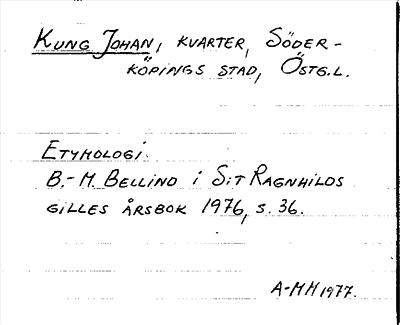 KUNG JOHAN, KVARTER, SÖDER-
KÖPINGS STAD, ÖSTG.L.
ETYMOLOGI:
B.-M. BELLIND i S:T RAGNHILDS
GILLES ÅRSBOK 1976, S. 36.
A-MH 1977.